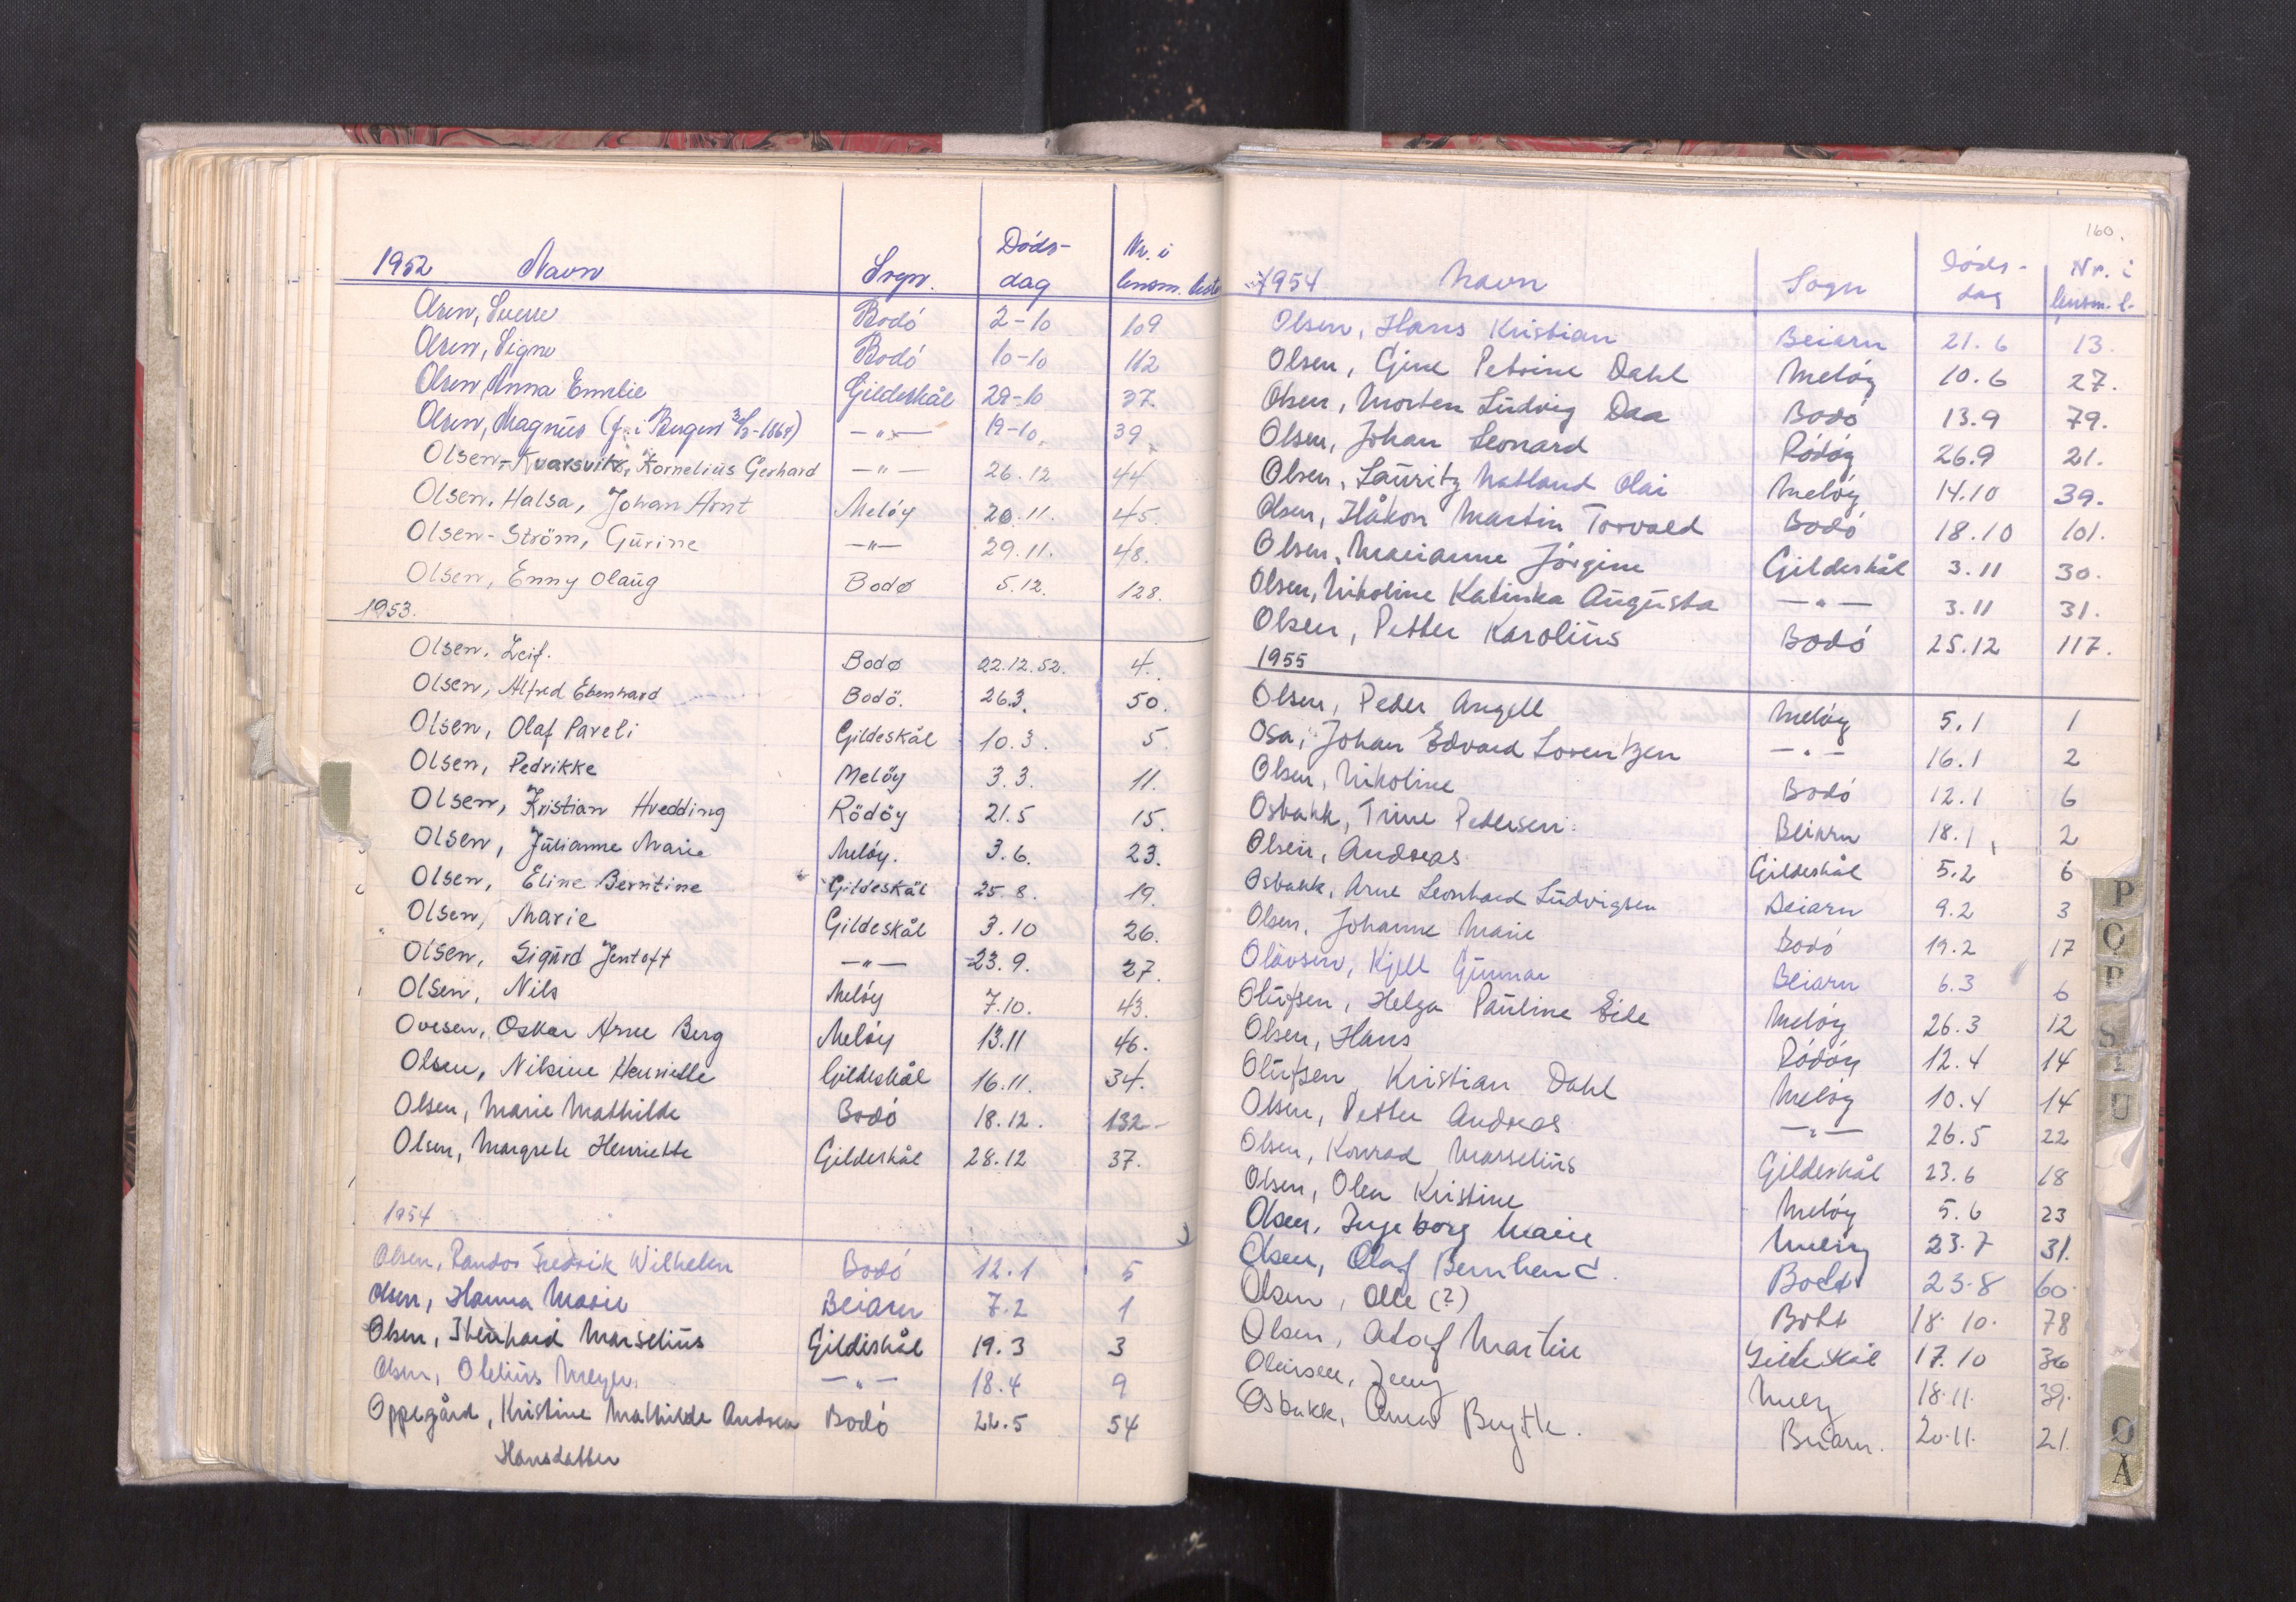 1952 Navn Sogn. Døds-dag Nr. i lensm. liste
Olsen, Sverre Bodó 2-10 109
Olsen, Signe Bodó 10-10 112
Olsen, Anna Emelie Gildeskål 29-10 37.
Olsen, Magnus (f. i Bergen 3/3-1864) —"— 19-10. 39
Olsen-Kvarsvik, Kornelius Gerhard —"— 26.12 44
Olsen. Halsa, Johan Arnt Melöy 20.11. 45.
Olsen-Ström, Gurine —"— 29.11. 48.
Olsen, Enny Olaug Bodø 5.12. 128.
1953.
Olsen. Leif. Bodø 22.12.52. 4.
Olsen, Alfred Ebenhard Bodö. 26.3. 50.
Olsen, Olaf Pareli Gildeskål 10.3. 5.
Olsen, Pedrikke Melöy 3.3. 11.
Olsen, Kristian Hvedding Rödöy 21.5 15.
Olsen, Julianne Marie Melöy. 3.6. 23.
Olsen, Eline Berntine Gildeskål 25.8. 19.
Olsen, Marie Gildeskål 3.10 26.
Olsen, Sigurd Jentoft —"— 23.9. 27.
Olsen, Nils Melöy 7.10. 43.
Ovesen, Oskar Arne Berg Melöy 13.11 46.
Olsen, Nilsine Henriette Gildeskål 16.11. 34.
Olsen, Marie Mathilde Bodó 18.12. 132-
Olsen, Margrete Henriette Gildeskål 28.12 37.
1954
Olsen, Randor Fredrik Wilhelm Bodó 12.1 5
Olsen, Hanna Marie Beiarn 7.2 1
Olsen, Ibenhard Marselius Gildeskål 19.3 3
Olsen, Olelius Meyer. —"— 18.4 9
Oppegård, Kristine Mathilde Andrea Bodó 22.5 54
Hansdatter
160.
1954 Navn Sogn Døds-dag Nr. i lensm. l.
Olsen, Hans Kristian Beiarn 21.6 13.
Olsen, Gine Petrine Dahl Melóy 10.6 27.
Olsen, Morten Ludvig Daa Bodó 13.9 79.
Olsen, Johan Leonard Ródóy 26.9 21.
Olsen, Lauritz Natland Olai Melóy 14.10 39.
Olsen, Håkon Martin Torvald Bodó 18.10 101.
Olsen, Marianne Jórgine Gildeskål 3.11 30.
Olsen, Nikoline Katinka Augusta —"— 3.11 31.
Olsen, Petter Karolius Bodó 25.12 117.
1955
Olsen, Peder Angell Melóy 5.1 1
Osa, Johan Edvard Lorentzen —"— 16.1 2
Olsen, Nikoline Bodó 12.1 6
Osbakk, Trine Pedersen. Beiarn 18.1 2
Olsen, Andreas Gildeskål 5.2 6
Osbakk, Arne Leonhard Ludvigsen Beiarn 9.2 3
Olsen, Johanne Marie Bodó 19.2 17
Olavsen, Kjell Gunnar Beiarn 6.3 6
Olufsen, Helga Pauline Eide Melóy 26.3 12
Olsen, Hans Ródóy 12.4 14
Olufsen Kristian Dahl Melóy 10.4 14
Olsen, Petter Andreas —"— 26.5 22
Olsen, Konrad Marselius Gildeskål 23.6 18
Olsen, Olea Kristine Melóy 5.6 23
Olsen, Ingeborg Marie Meløy 23.7 31.
Olsen, Olaf Bernhard. Bodø 23.8 60.
Olsen, Olle (?) Bodø 18.10. 78
Olsen, Adolf Martin Gildeskål 17.10 36
Jenny Meløy 18.11. 39.
Osbakk, Anna Birgitte. Beiarn. 20.11. 21.
P
Q
R
S
T
U
O
Å